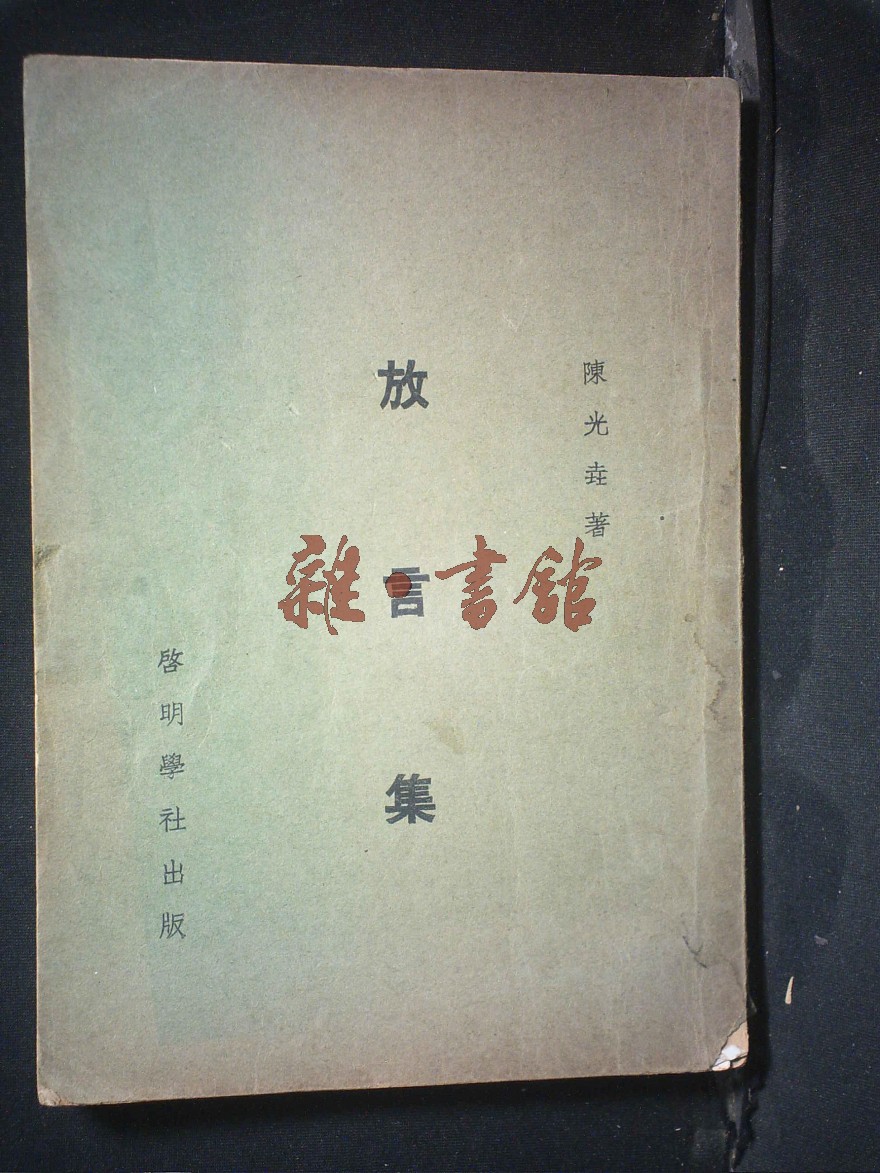 陳光垚著
放言集
啓明學社出版
雜·書館